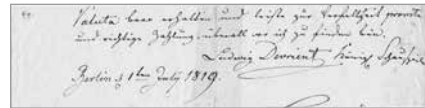 Valuta baar erhalten und leiste zur Verfallzeit promte
und richtige Zahlung überall wo ich zu finden bin.
Ludwig Devrient Königl. Schauspieler
Berlin d. 1ten July 1819.